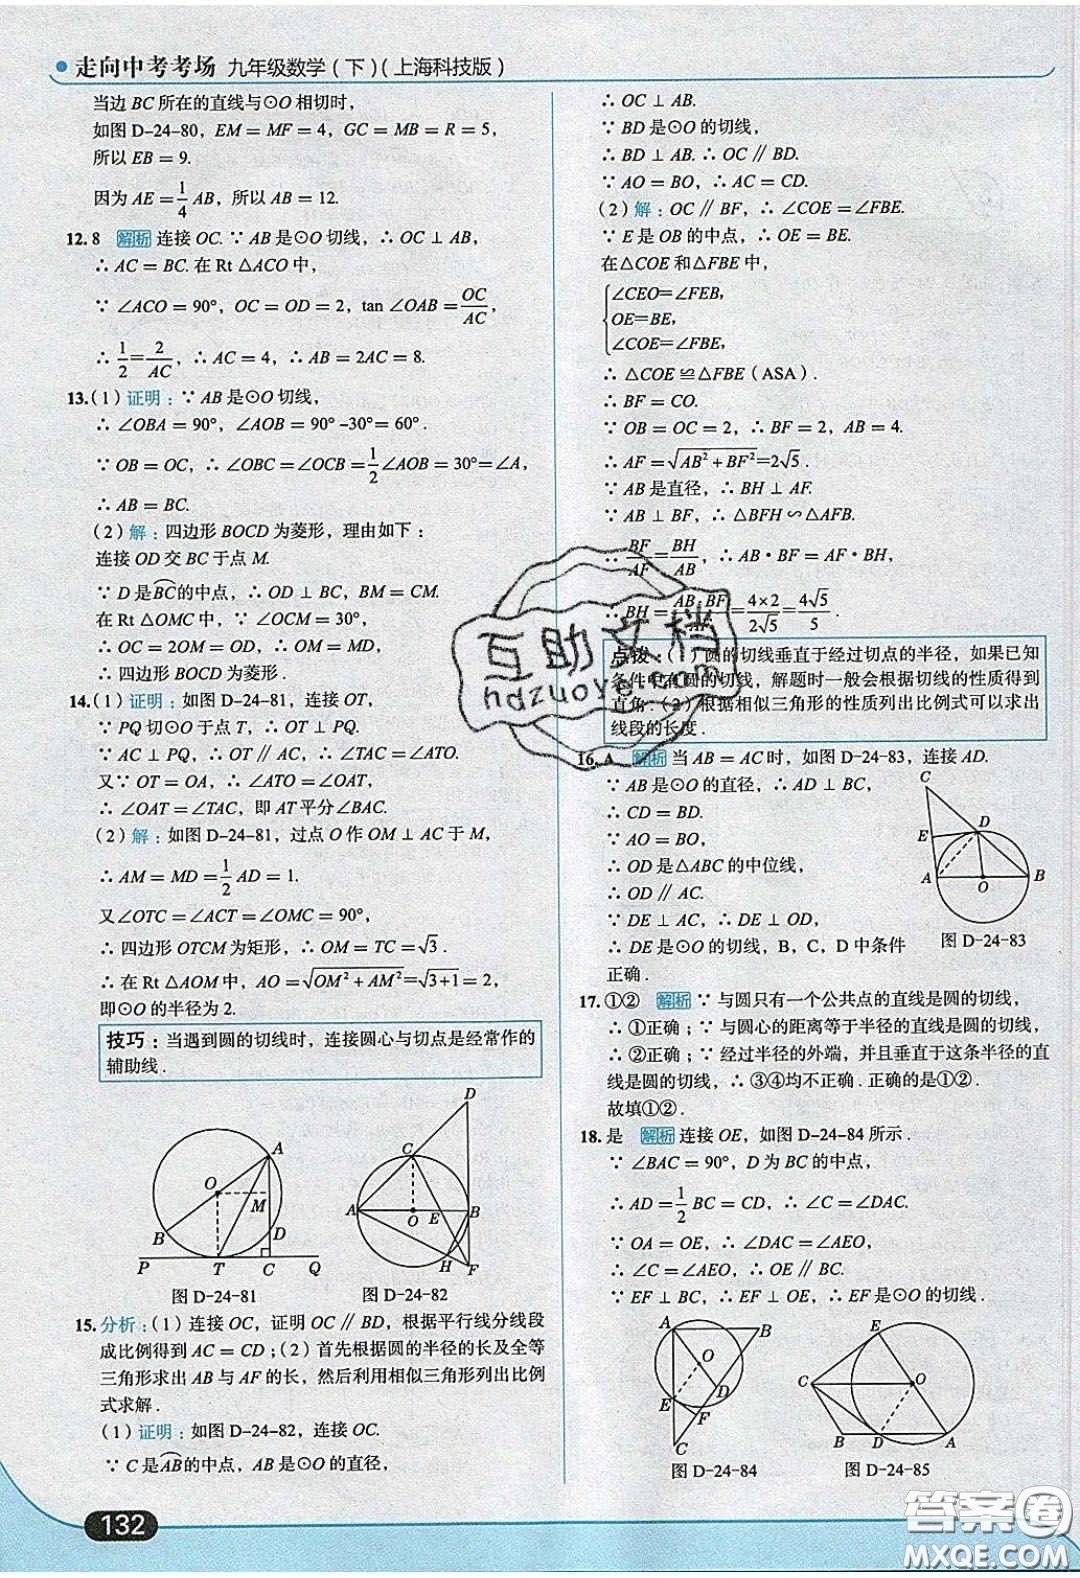 走向中考考场 九年级数学(下)(上海科技版)
当边 BC 所在的直线与⊙O 相切时,
如图 D-24-80, EM = MF = 4, GC = MB = R = 5,
所以 EB = 9.
因为 AE = 1/4 AB, 所以 AB = 12.
12. 8 解析 连接 OC. ∵ AB 是⊙O 切线, ∴ OC ⊥ AB,
∴ AC = BC. 在 Rt △ACO 中,
∵ ∠ACO = 90°, OC = OD = 2, tan ∠OAB = OC/AC,
∴ 1/2 = 2/AC, ∴ AC = 4, ∴ AB = 2AC = 8.
13. (1) 证明: ∵ AB 是⊙O 切线,
∴ ∠OBA = 90°, ∠AOB = 90° -30° = 60°.
∵ OB = OC, ∴ ∠OBC = ∠OCB = 1/2 ∠AOB = 30° = ∠A,
∴ AB = BC.
(2) 解: 四边形 BOCD 为菱形, 理由如下:
连接 OD 交 BC 于点 M.
∵ D 是 BC 的中点, ∴ OD ⊥ BC, BM = CM.
在 Rt △OMC 中, ∵ ∠OCM = 30°,
∴ OC = 2OM = OD, ∴ OM = MD,
∴ 四边形 BOCD 为菱形.
14. (1) 证明: 如图 D-24-81, 连接 OT,
∵ PQ 切⊙O 于点 T, ∴ OT ⊥ PQ.
∵ AC ⊥ PQ, ∴ OT ∥ AC, ∴ ∠TAC = ∠ATO.
又∵ OT = OA, ∴ ∠ATO = ∠OAT,
∴ ∠OAT = ∠TAC, 即 AT 平分∠BAC.
(2) 解: 如图 D-24-81, 过点 O 作 OM ⊥ AC 于 M,
∴ AM = MD = 1/2 AD = 1.
又∠OTC = ∠ACT = ∠OMC = 90°,
∴ 四边形 OTCM 为矩形, ∴ OM = TC = √3.
∴ 在 Rt △AOM 中, AO = √(OM² + AM²) = √(3+1) = 2,
即⊙O 的半径为 2.
技巧: 当遇到圆的切线时, 连接圆心与切点是经常作的
辅助线.
A
O
M
B
D
P
T
C
Q
图 D-24-81
D
C
A
O
E
B
H
F
图 D-24-82
15. 分析: (1) 连接 OC, 证明 OC ∥ BD, 根据平行线分线段
成比例得到 AC = CD; (2) 首先根据圆的半径的长及全等
三角形求出 AB 与 AF 的长, 然后利用相似三角形列出比例
式求解.
(1) 证明: 如图 D-24-82, 连接 OC.
∵ C 是 AB 的中点, AB 是⊙O 的直径,
∴ OC ⊥ AB.
∵ BD 是⊙O 的切线,
∴ BD ⊥ AB. ∴ OC ∥ BD.
∵ AO = BO, ∴ AC = CD.
(2) 解: OC ∥ BF, ∴ ∠COE = ∠FBE.
∵ E 是 OB 的中点, ∴ OE = BE.
在△COE 和△FBE 中,
∠CEO = ∠FEB,
OE = BE,
∠COE = ∠FBE,
∴ △COE ≌ △FBE (ASA).
∴ BF = CO.
∵ OB = OC = 2, ∴ BF = 2, AB = 4.
∴ AF = √(AB² + BF²) = 2√5.
∵ AB 是直径, ∴ BH ⊥ AF.
∵ AB ⊥ BF, ∴ △BFH ∽ △AFB.
∴ BF/AF = BH/AB, ∴ AB · BF = AF · BH,
∴ BH = AB·BF/AF = 4×2/2√5 = 4√5/5.
点拨: (1) 圆的切线垂直于经过切点的半径, 如果已知
条件中有圆的切线, 解题时一般会根据切线的性质得到
直角. (2) 根据相似三角形的性质列出比例式可以求出
线段的长度.
互助文档
hdzuoye.com
16. A 解析 当 AB = AC 时, 如图 D-24-83, 连接 AD.
∵ AB 是⊙O 的直径, ∴ AD ⊥ BC,
∴ CD = BD.
∵ AO = BO,
∴ OD 是△ABC 的中位线,
∴ OD ∥ AC.
∵ DE ⊥ AC, ∴ DE ⊥ OD,
∴ DE 是⊙O 的切线, B, C, D 中条件
正确.
C
D
E
A
O
B
图 D-24-83
17. ①② 解析 ∵ 与圆只有一个公共点的直线是圆的切线,
∴ ①正确; ∵ 与圆心的距离等于半径的直线是圆的切线,
∴ ②正确; ∵ 经过半径的外端, 并且垂直于这条半径的直
线是圆的切线, ∴ ③④均不正确. 正确的是①②.
故填①②.
18. 是 解析 连接 OE, 如图 D-24-84 所示.
∵ ∠BAC = 90°, D 为 BC 的中点,
∴ AD = 1/2 BC = CD, ∴ ∠C = ∠DAC.
∵ OA = OE, ∴ ∠DAC = ∠AEO,
∴ ∠C = ∠AEO, ∴ OE ∥ BC.
∵ EF ⊥ BC, ∴ EF ⊥ OE, ∴ EF 是⊙O 的切线.
A
B
O
D
E
F
C
图 D-24-84
E
C
O
B
D
A
图 D-24-85
132
答案圈
MXQE.COM